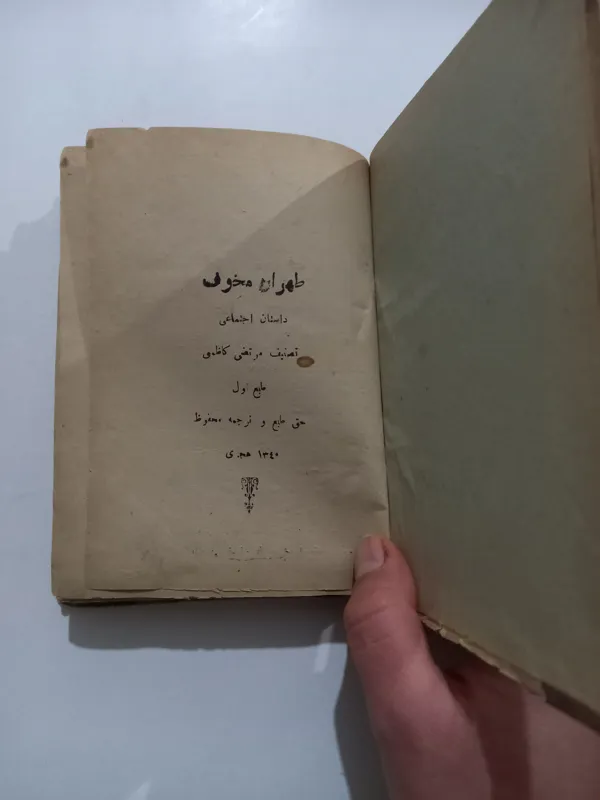 طهران مخوف
داستان اجتماعی
تصنیف مرتضی کاظمی
طبع اول
حق طبع و ترجمه محفوظ
۱۳۴۰ هجری